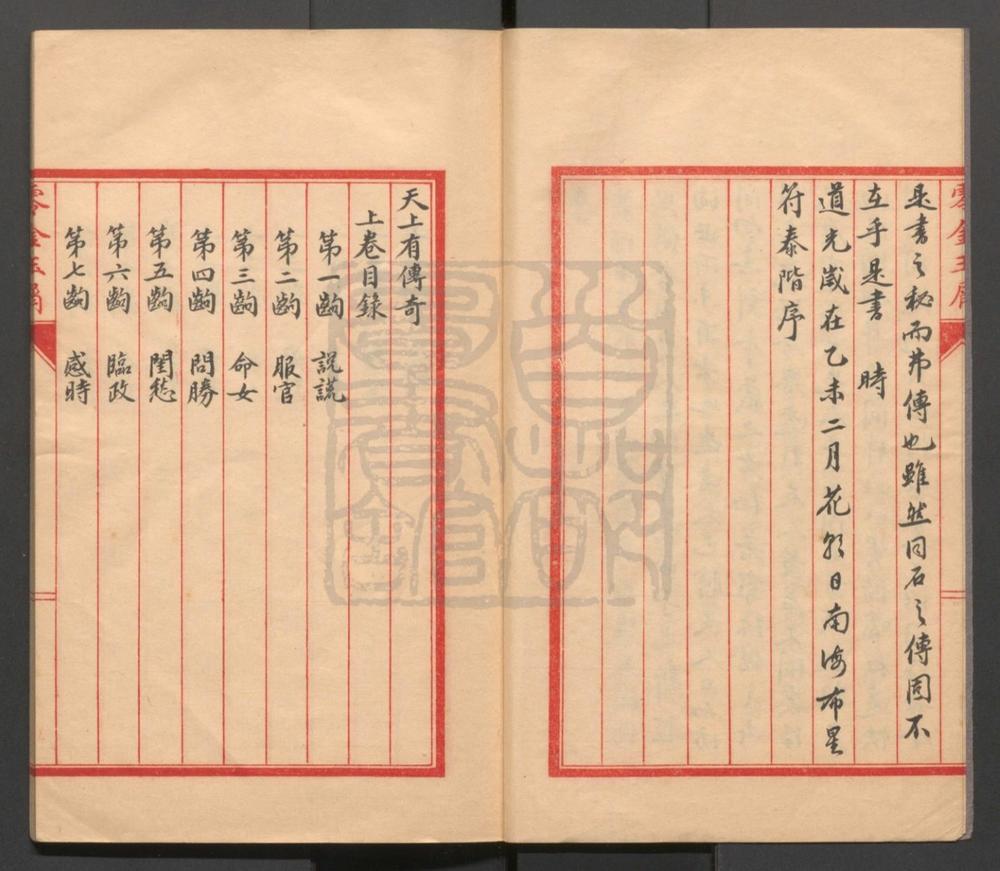 是書之秘而弗傳也雖然同石之傳固不
在乎是書　時
道光歲在乙未二月花朝日南海布星
符泰階序
天上有傳奇
上卷目錄
第一齣　説謊
第二齣　服官
第三齣　命女
第四齣　問勝
第五齣　閨愁
第六齣　臨政
第七齣　感時